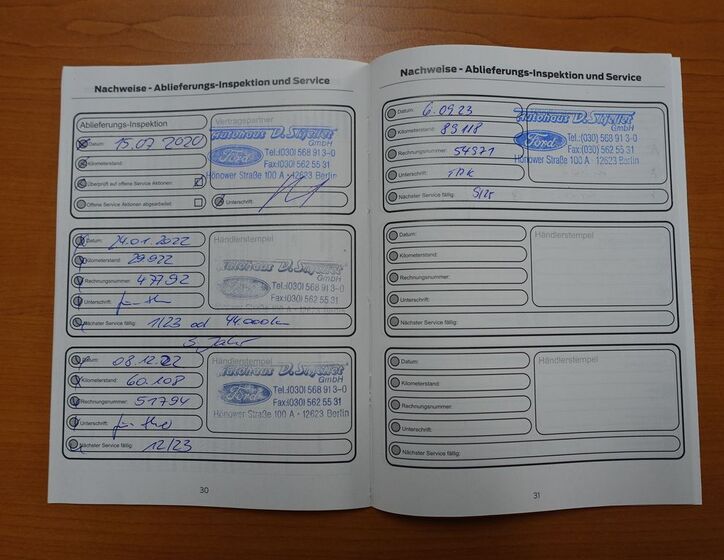 Nachweise - Ablieferungs-Inspektion und Service
Ablieferungs-Inspektion
Vertragspartner
Datum: 15.07 2020
Kilometerstand:
Überprüft auf offene Service Aktionen
Offene Service Aktionen abgearbeitet
Unterschrift:
Autohaus
GmbH
Ford
Tel.:(030) 568 91 3-0
Fax:(030) 562 55 31
Hönower Straße 100 A - 12623 Berlin
Datum: 24.01.2022
Händlerstempel
Kilometerstand: 29922
Rechnungsnummer: 47792
Unterschrift:
Nächster Service fällig: 1/23 od 44.000km
3. Jahr
Autohaus
GmbH
Ford
Tel.:(030) 568 91 3-0
Fax:(030) 562 55 31
Datum: 08.12.22
Händlerstempel
Kilometerstand: 60.108
Rechnungsnummer: 51794
Unterschrift:
Nächster Service fällig: 12/23
Autohaus
GmbH
Ford
Tel.:(030) 568 91 3-0
Fax:(030) 562 55 31
Hönower Straße 100 A - 12623 Berlin
30
Nachweise - Ablieferungs-Inspektion und Service
Datum: 6.09.23
Kilometerstand: 89118
Rechnungsnummer: 54971
Unterschrift:
Nächster Service fällig:
Autohaus
GmbH
Ford
Tel.:(030) 568 91 3-0
Fax:(030) 562 55 31
Hönower Straße 100 A - 12623 Berlin
Datum:
Händlerstempel
Kilometerstand:
Rechnungsnummer:
Unterschrift:
Nächster Service fällig:
Datum:
Händlerstempel
Kilometerstand:
Rechnungsnummer:
Unterschrift:
Nächster Service fällig:
31